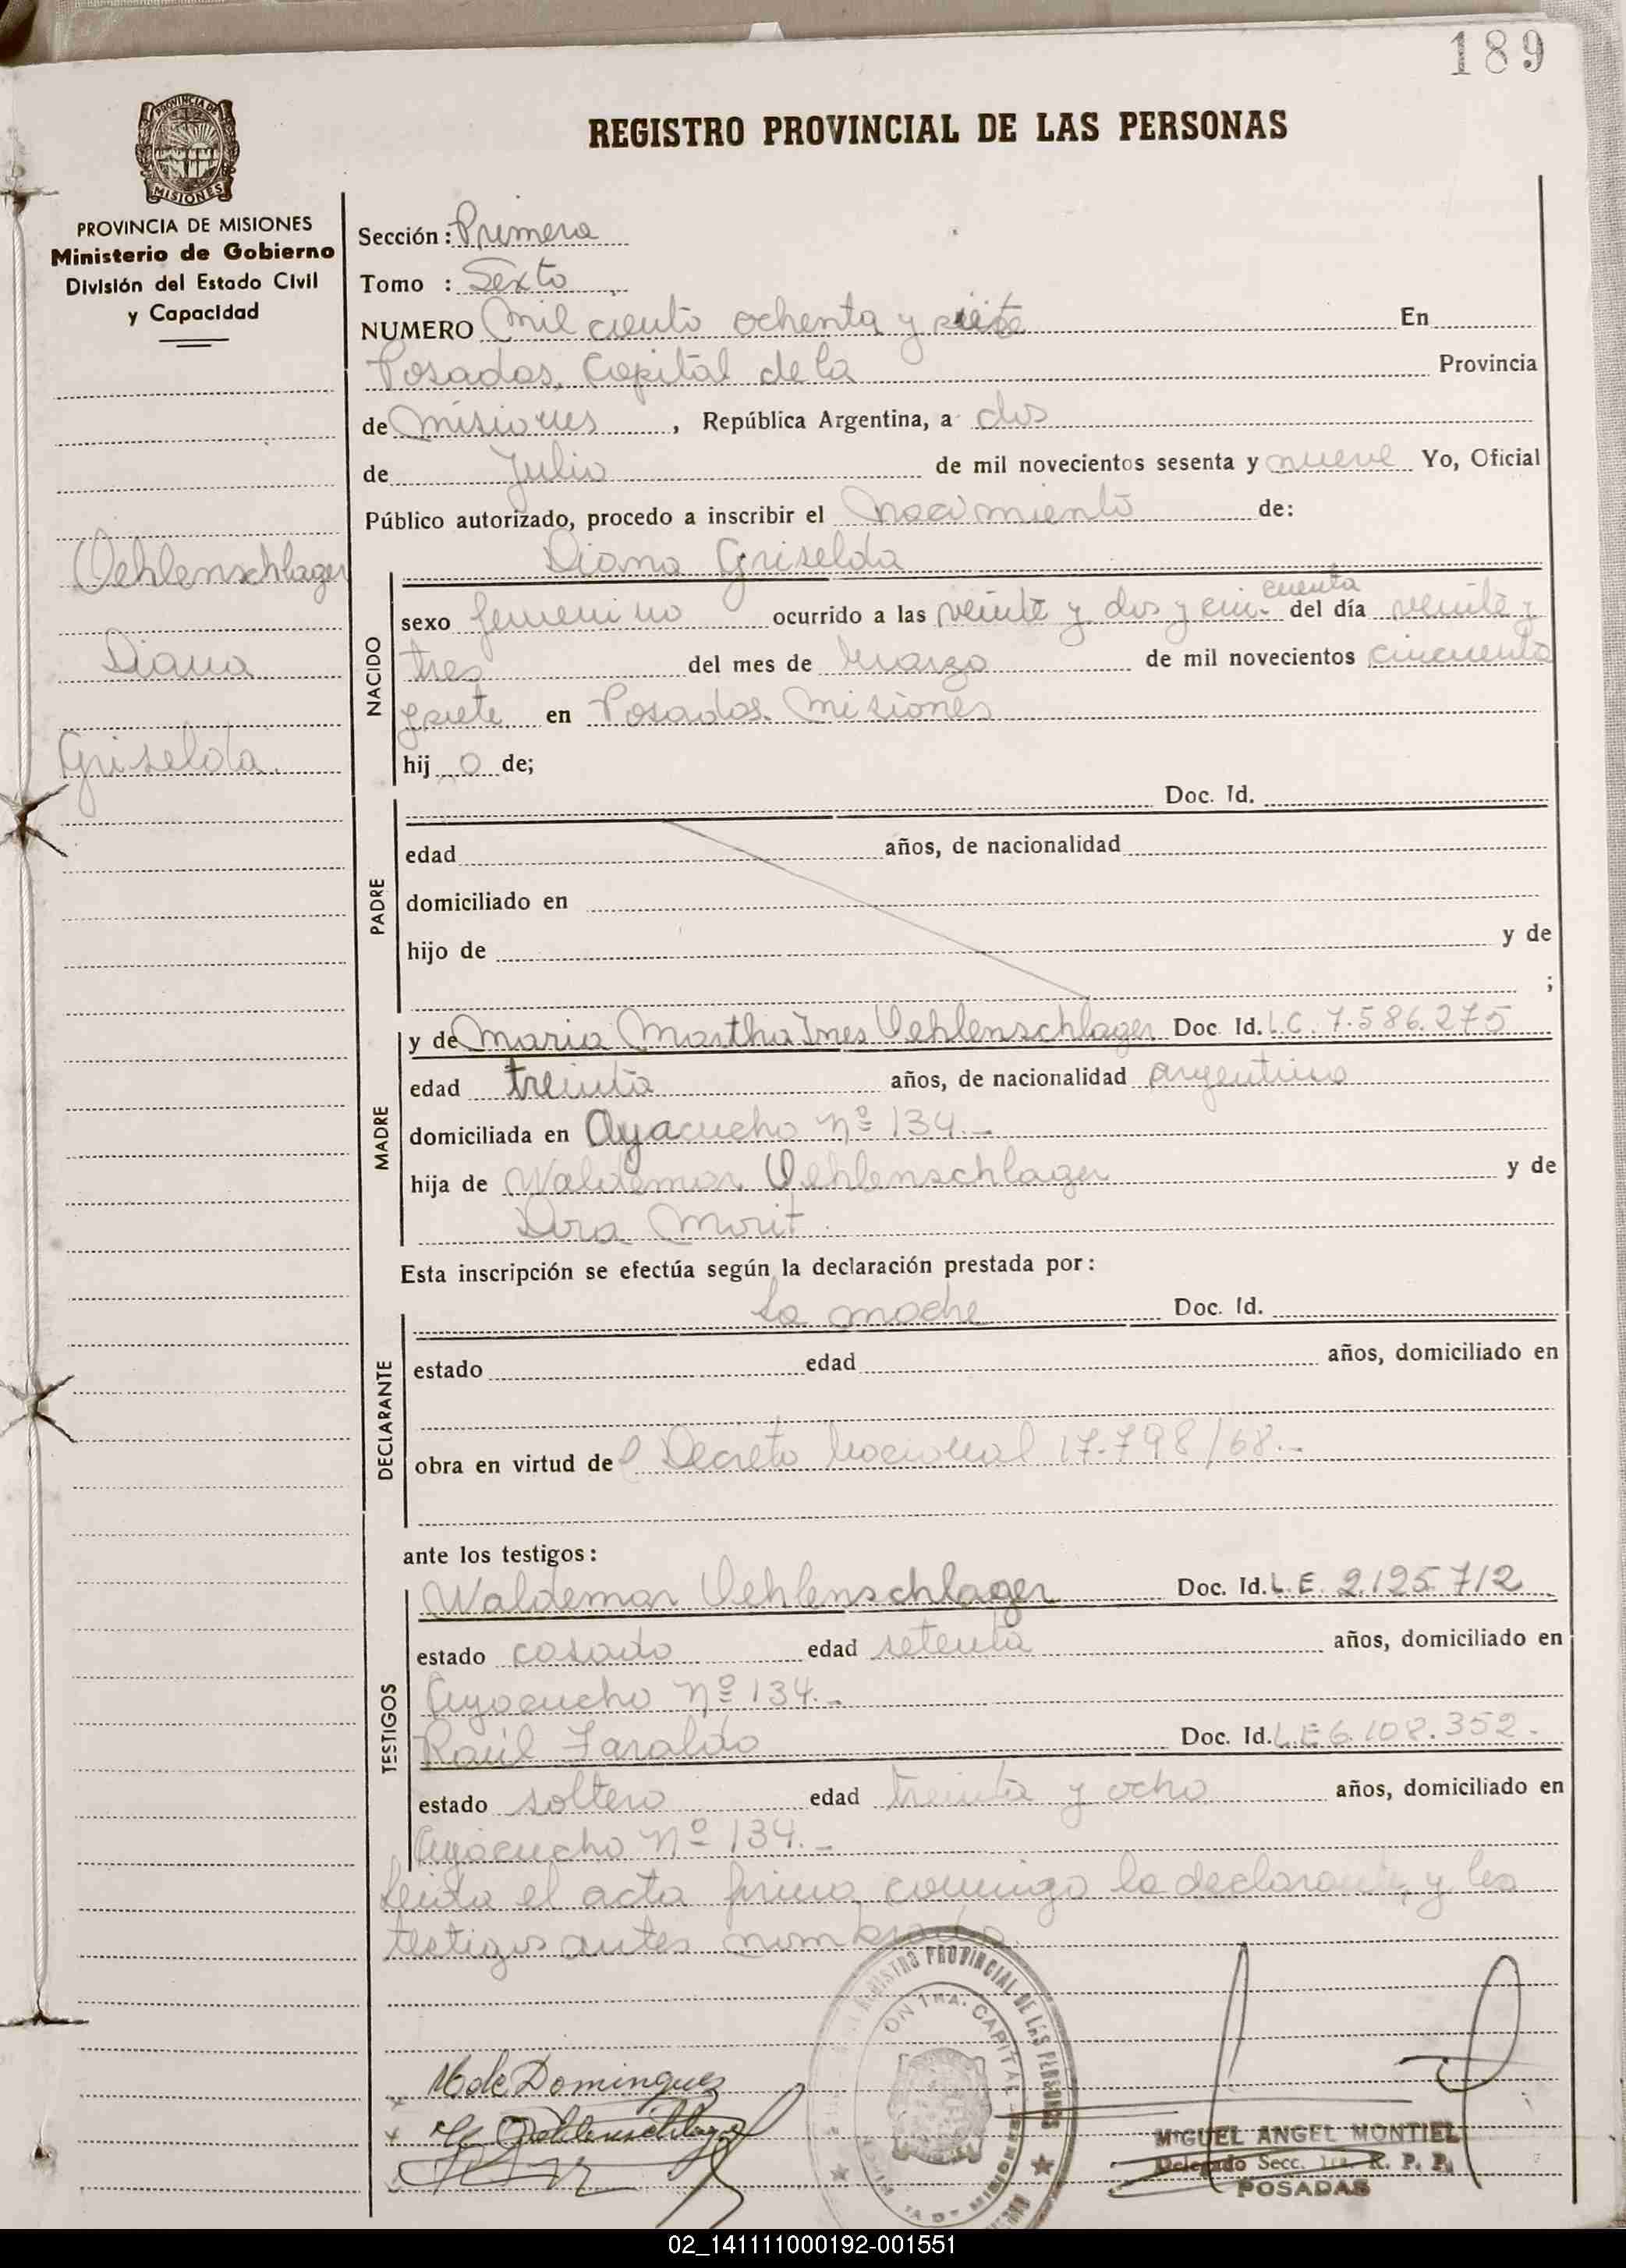 189
REGISTRO PROVINCIAL DE LAS PERSONAS
PROVINCIA DE MISIONES
PROVINCIA DE MISIONES
Ministerio de Gobierno
División del Estado Civil
y Capacidad
Oehlenschlager
Diana
Griselda.
Sección: Primera
Tomo : Sexto
NUMERO Mil ciento ochenta y siete En
Posadas, Capital de la Provincia
de Misiones, República Argentina, a dos
de Julio de mil novecientos sesenta y nueve Yo, Oficial
Público autorizado, procedo a inscribir el Nacimiento de:
Diana Griselda
NACIDO
sexo femenino ocurrido a las veinte y dos y cin-cuenta del día veinte y
tres del mes de Marzo de mil novecientos cincuenta
y siete en Posadas Misiones
hij o de;
PADRE
Doc. Id.
edad años, de nacionalidad
domiciliado en
hijo de y de
;
MADRE
y de Maria Martha Ines Oehlenschlager Doc. Id. L.C. 7.586.275
edad treinta años, de nacionalidad argentina
domiciliada en Ayacucho Nº 134.-
hija de Waldemar Oehlenschlager y de
Dora Morit.
Esta inscripción se efectúa según la declaración prestada por:
DECLARANTE
La madre Doc. Id.
estado edad años, domiciliado en
obra en virtud del Decreto Nacional 17.798/68.-
ante los testigos:
TESTIGOS
Waldemar Oehlenschlager Doc. Id. L.E. 2.125.712
estado casado edad setenta años, domiciliado en
Ayacucho Nº 134.-
Raúl Faraldo Doc. Id. L.E 6.108.352.-
estado soltero edad treinta y ocho años, domiciliado en
Ayacucho Nº 134.-
Leida el acta firma conmigo la declarante, y los
testigos antes nombrados.
REGISTRO PROVINCIAL DE LAS PERSONAS
CAPITAL
MISIONES
M de Dominguez
Oehlenschlager
MIGUEL ANGEL MONTIEL
Delegado Secc. 1ra. R. P. P.
POSADAS
02_141111000192-001551